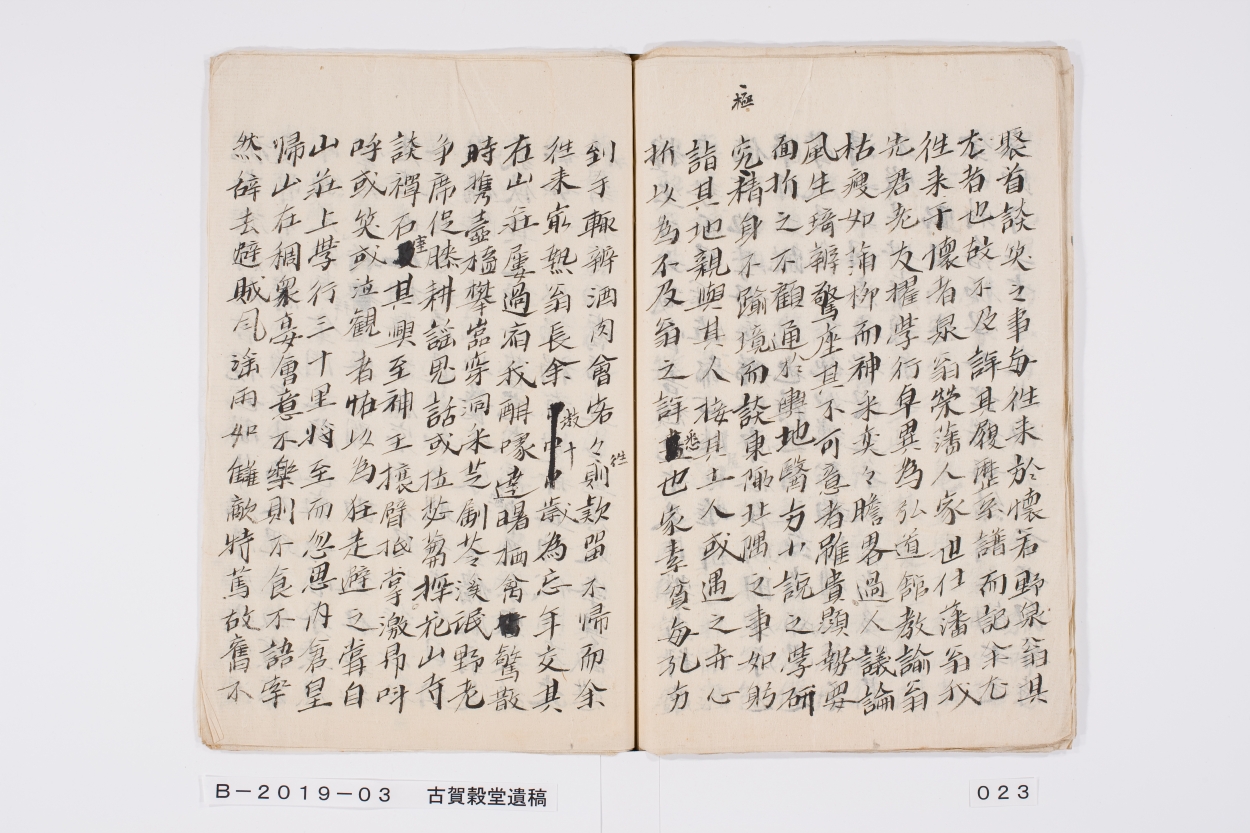 極
聚首談笑之事毎往来於懐若野泉翁其
尤者也故不及詳其履歴系譜而記余尤
往来于懐者泉翁榮藩人家世仕藩翁我
先君老友擢学行卓異為弘道館教諭翁
枯痩如蒲柳而神采奕々膽畧過人議論
風生琦辯驚座其不可意者雖貴顕勢要
面折之不顧通於輿地醫方小説之学研
究精身不踰境而談東陬北隅之事如躬
詣其地親與其人接其土人或遇之弁心
折以為不及翁之詳悉也家素貧毎孔方
到手輙辨酒肉會客々往則欵留不帰而余
往来寂熱翁長余数十歳為忘年交其
在山荘屡過宿我酣啄達曙栖禽驚散
時携壺榼攀嵓穿洞采芝劚苓浅氓野老
争席促膝耕謡鬼話或拉苾蒭探花山寺
談禅石唐其興至神王攘臂抵掌激昂叫
呼或笑或泣観者怕以為狂走避之嘗自
山荘上学行三十里将至而忽思内倉皇
帰山在稠衆宴會意不樂則不食不語率
然辞去避賊風滛雨如讎敵特篤故舊不
B－2019－03　古賀穀堂遺稿
023